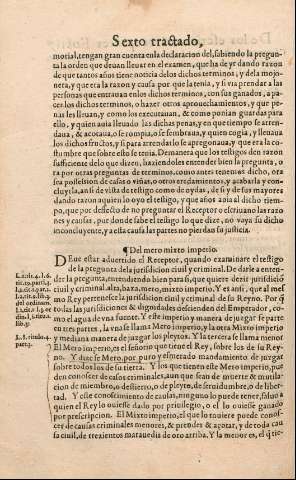 Sexto tractado,
morial, tengan gran cuenta en la declaracion del, sabiendo la pregun-
ta la orden que deuan lleuar en el examen, que ha de yr dando razon
de que tantos años tiene noticia delos dichos terminos, y dela mojo-
nera, y que era la razon y causa por que la tenia, y si via prender a las
personas que entrauan enlos dichos terminos, con sus ganados, a pa-
cer los dichos terminos, o hazer otros aprouechamientos, y que pe-
nas les lleuan, y como los executauan, & como ponian guardas para
ello, y quien auia lleuado las dichas penas, y en que tiempo se arren-
daua, & acotaua, o se rompia, o se sembraua, y quien cogia, y lleuaua
los dichos fructos, y si para arrendarlo se apregonaua, y que era la co-
stumbre que sobre esto se tenia. Demanera que los testigos den razon
sufficiente delo que dizen, haziendoles entender bien la pregunta, o
ra por otras preguntas de terminos, como antes tenemos dicho, ora
sea possession de casas o viñas, o otros eredamientos, y acabarla y con-
cluyrla, ansi de vista de testigo como de oydas, de si y de sus mayores
dando razon a quien lo oyo el testigo, y que años auia al dicho tiem-
po, que por deffecto de no preguntar el Receptor o escriuano las razo-
nes y causas, por donde sabe el testigo lo que dize, no vaya su dicho
inconcluyente, y a ella causa las partes no pierdan su justicia.
¶ Del mero mixto imperio.
DEue estar aduertido el Receptor, quando examinare el testigo
de la pregunta dela jurisdicion ciuil y criminal. De darle a enten-
der la pregunta, entendiendo bien para si, que quiere dezir jurisdicio
ciuil y criminal, alta, baxa, mero, mixto, imperio. Y es ansi, que al mes
mo Rey pertenesce la jurisdicion ciuil y criminal de su Reyno. Por q̃
todas las jurisdiciones & dignidades descienden del Emperador, co-
mo el agua de vna fuente. Y este imperio y manera de juzgar se parte
en tres partes, la vna se llama Mero imperio, y la otra Mixto imperio
y mediana manera de juzgar los pleytos. Y la tercera se llama menor
El Mero imperio, es el señorio que tiene el Rey, sobre los de su Rey-
no. Y dize se Mero, por puro y esmerado mandamiento de juzgar
sobre todos los de su tierra. Y los que tienen este Mero imperio, pue-
den conoscer de casos criminales, aun que sean de muerte & mutila-
cion de miembro, o destierro, o de pleyto, de seruidumbre, o de liber-
tad. Y este conoscimiento de causas, ninguno lo puede tener, saluo a
quien el Rey lo ouiesse dado por priuilegio, o el lo ouiesse ganado
por prescripcion. El Mixto imperio, el que lo touiere puede conos-
cer de causas criminales menores, & prender & açotar, y de toda cau
sa ciuil, de trezientos marauedis de oro arriba. Y la menor es, el q̃ tie-